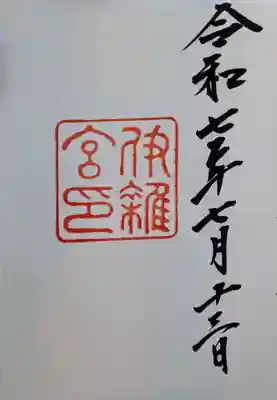 令和七年七月十三日
伊雜
宮印